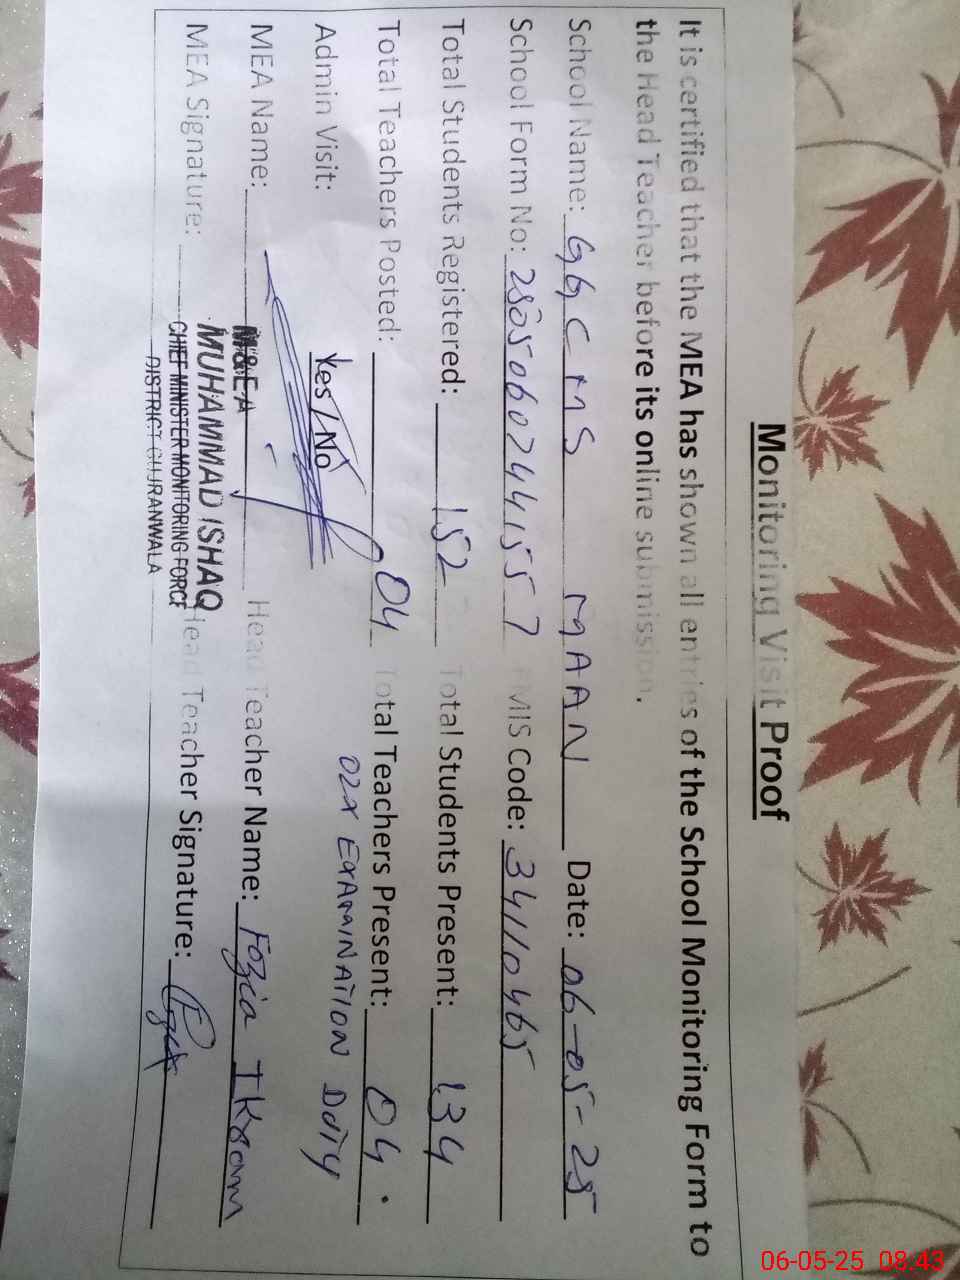 Monitoring Visit Proof
It is certified that the MEA has shown all entries of the School Monitoring Form to
the Head Teacher before its online submission.
School Name: GGCMS MAAN Date: 06-05-25
School Form No: 2505060244155 7 EMIS Code: 34110465
Total Students Registered: 152 Total Students Present: 134
Total Teachers Posted: 04 Total Teachers Present: 04.
Admin Visit: Yes / No 02x EXAMINATION DUTY
MEA Name: M&EA Head Teacher Name: Fozia Ikram
MUHAMMAD ISHAQ
MEA Signature: Head Teacher Signature:
CHIEF MINISTER MONITORING FORCE
DISTRICT GUJRANWALA
06-05-25 08:43